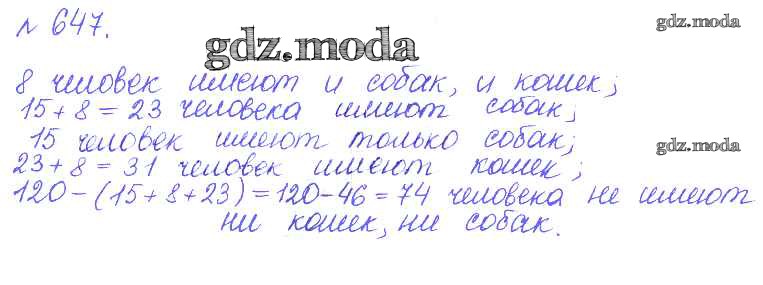 № 647.
gdz.moda
gdz.moda
8 человек имеют и собак, и кошек;
15+8=23 человека имеют собак;
15 человек имеют только собак;
gdz.moda
23+8=31 человек имеют кошек;
120-(15+8+23)=120-46=74 человека не имеют
ни кошек, ни собак.